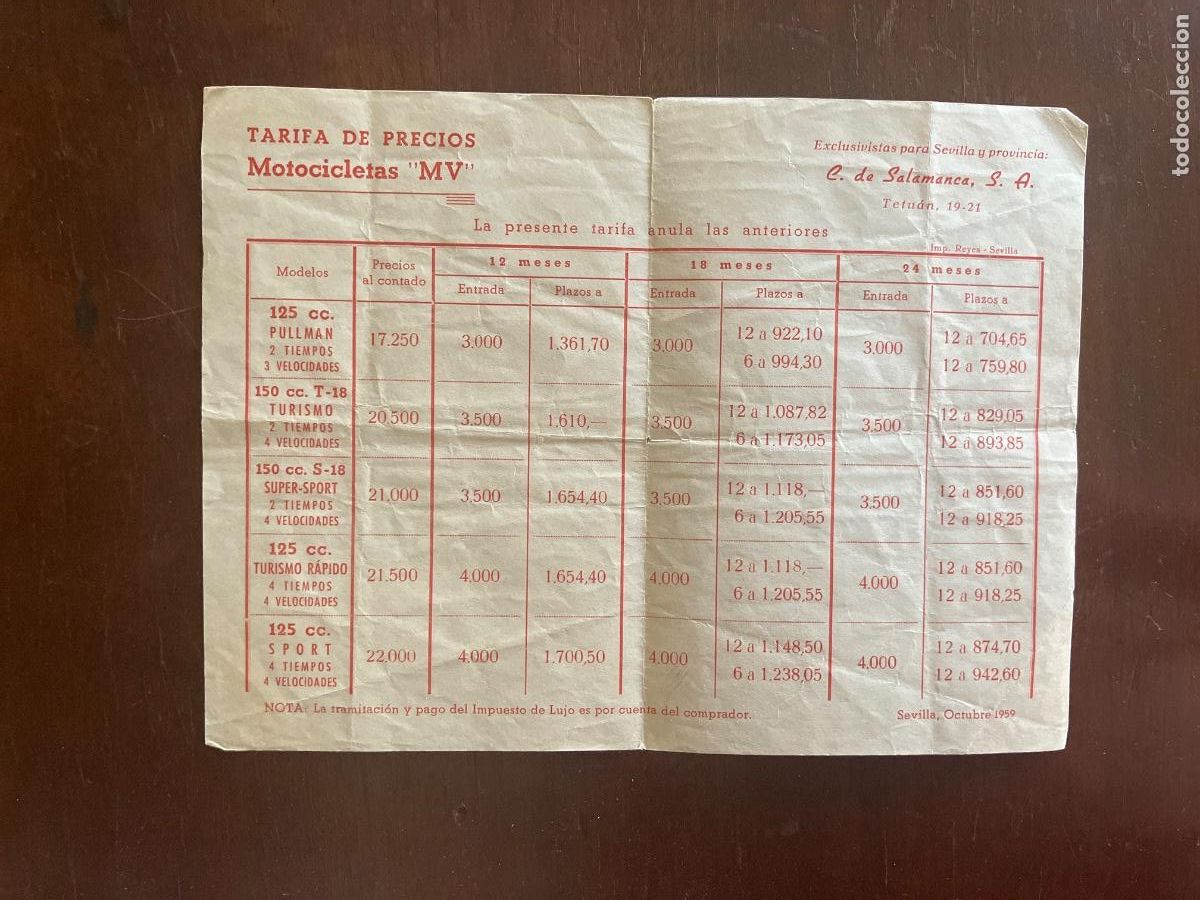 TARIFA DE PRECIOS
Motocicletas "MV"
Exclusivistas para Sevilla y provincia:
C. de Salamanca, S. A.
Tetuán, 19-21
La presente tarifa anula las anteriores
Imp. Reyes - Sevilla
Modelos Precios al contado 12 meses 18 meses 24 meses
Entrada Plazos a Entrada Plazos a Entrada Plazos a
125 cc.
PULLMAN
2 TIEMPOS
3 VELOCIDADES
17.250 3.000 1.361,70 3.000 12 a 922,10 3.000 12 a 704,65
6 a 994,30 12 a 759,80
150 cc. T-18
TURISMO
2 TIEMPOS
4 VELOCIDADES
20.500 3.500 1.610,— 3.500 12 a 1.087,82 3.500 12 a 829,05
6 a 1.173,05 12 a 893,85
150 cc. S-18
SUPER-SPORT
2 TIEMPOS
4 VELOCIDADES
21.000 3.500 1.654,40 3.500 12 a 1.118,— 3.500 12 a 851,60
6 a 1.205,55 12 a 918,25
125 cc.
TURISMO RÁPIDO
4 TIEMPOS
4 VELOCIDADES
21.500 4.000 1.654,40 4.000 12 a 1.118,— 4.000 12 a 851,60
6 a 1.205,55 12 a 918,25
125 cc.
SPORT
4 TIEMPOS
4 VELOCIDADES
22.000 4.000 1.700,50 4.000 12 a 1.148,50 4.000 12 a 874,70
6 a 1.238,05 12 a 942,60
NOTA: La tramitación y pago del Impuesto de Lujo es por cuenta del comprador.
Sevilla, Octubre 1959
todocoleccion